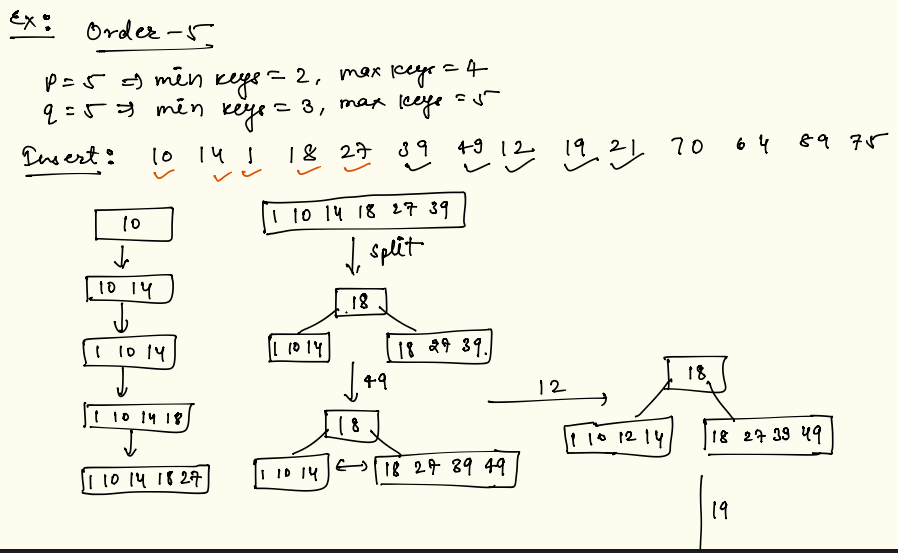 Ex:
Order-5
P=5 ⇒ min keys = 2, max keys = 4
q=5 ⇒ min keys = 3, max keys = 5
Insert: 10 14 1 18 27 39 49 12 19 21 70 64 89 75
10
10 14
1 10 14
1 10 14 18
1 10 14 18 27
1 10 14 18 27 39
split
18
1 10 14
18 27 39.
49
18
1 10 14
18 27 39 49
12
18
1 10 12 14
18 27 39 49
19